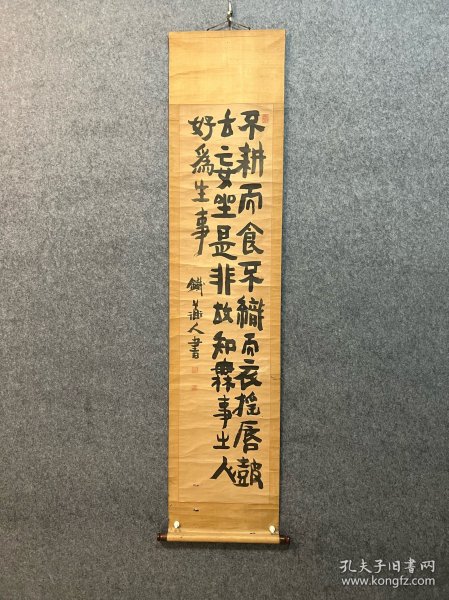 不耕而食不織而衣搖唇鼓
舌妄坐是非故知無事之人
好為生事
鐵道人書
孔夫子旧书网
www.kongfz.com